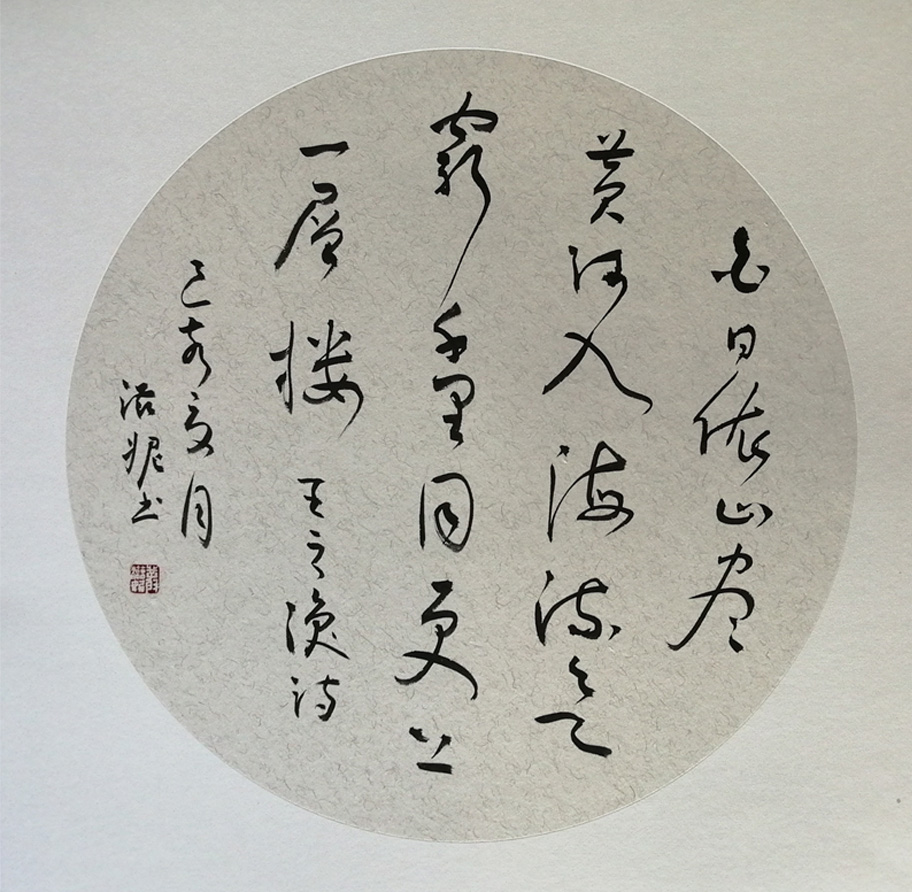 白日依山尽
黄河入海流欲
窮千里目更上
一層楼王之涣诗
己亥夏月
书